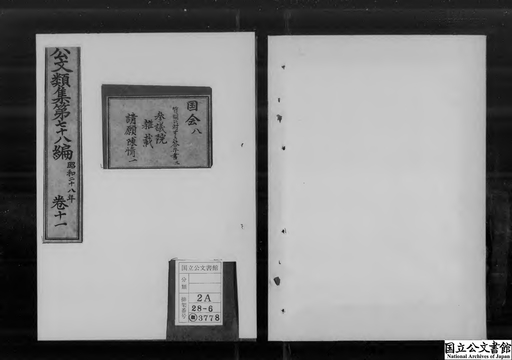 公文類集第七十八編
昭和二十八年
巻十一
国会八
参議院
雑載
請願陳情一
国立公文書館
分類
2A
28-6
3778
国立公文書館
National Archives of Japan